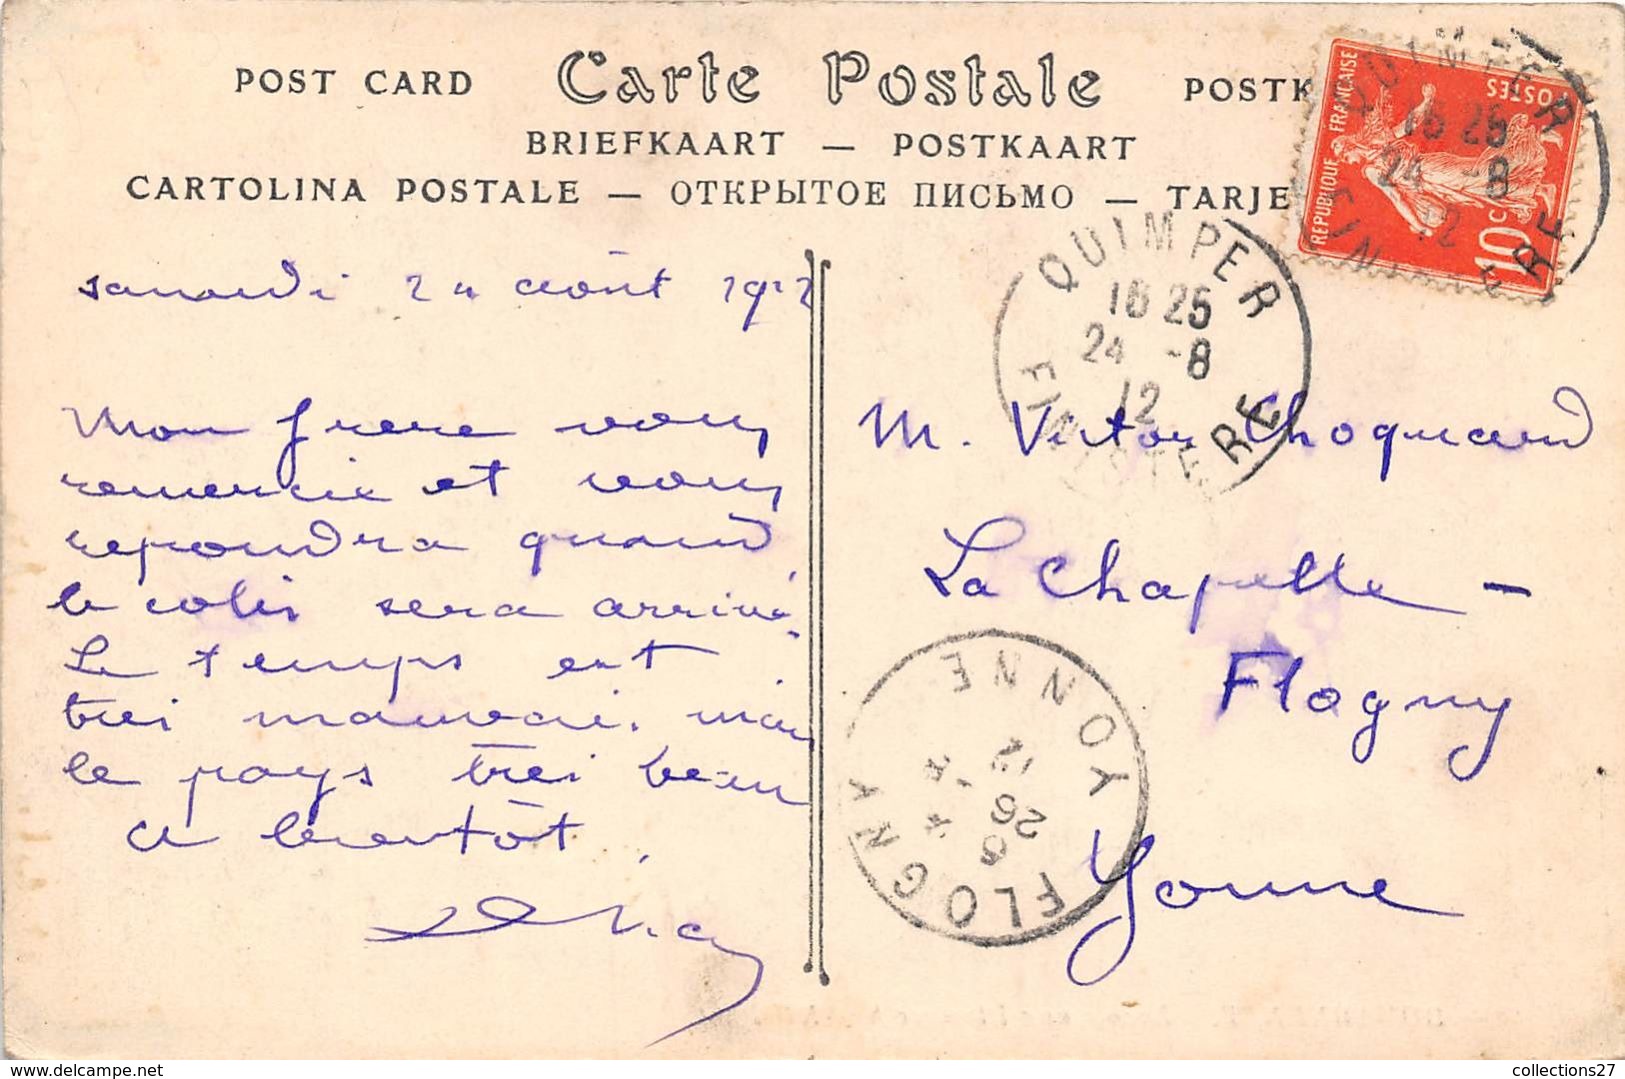 POST CARD Carte Postale POSTK
BRIEFKAART — POSTKAART
CARTOLINA POSTALE — ОТКРЫТОЕ ПИСЬМО — TARJE
REPUBLIQUE FRANÇAISE
POSTES
10c
QUIMPER
15 25
24 -8
12
FINISTERE
QUIMPER
15 25
24 -8
12
FINISTERE
samedi 24 août 1912
Mon frere vous
remercie et vous
repondra quand
le colis sera arrivé.
Le temps est
tres mauvais. mais
le pays tres beau
a bientôt.
M. Victor Choquard
La Chapelle -
Flogny
Yonne
YONNE
12
26
8
FLOGNY
collections27